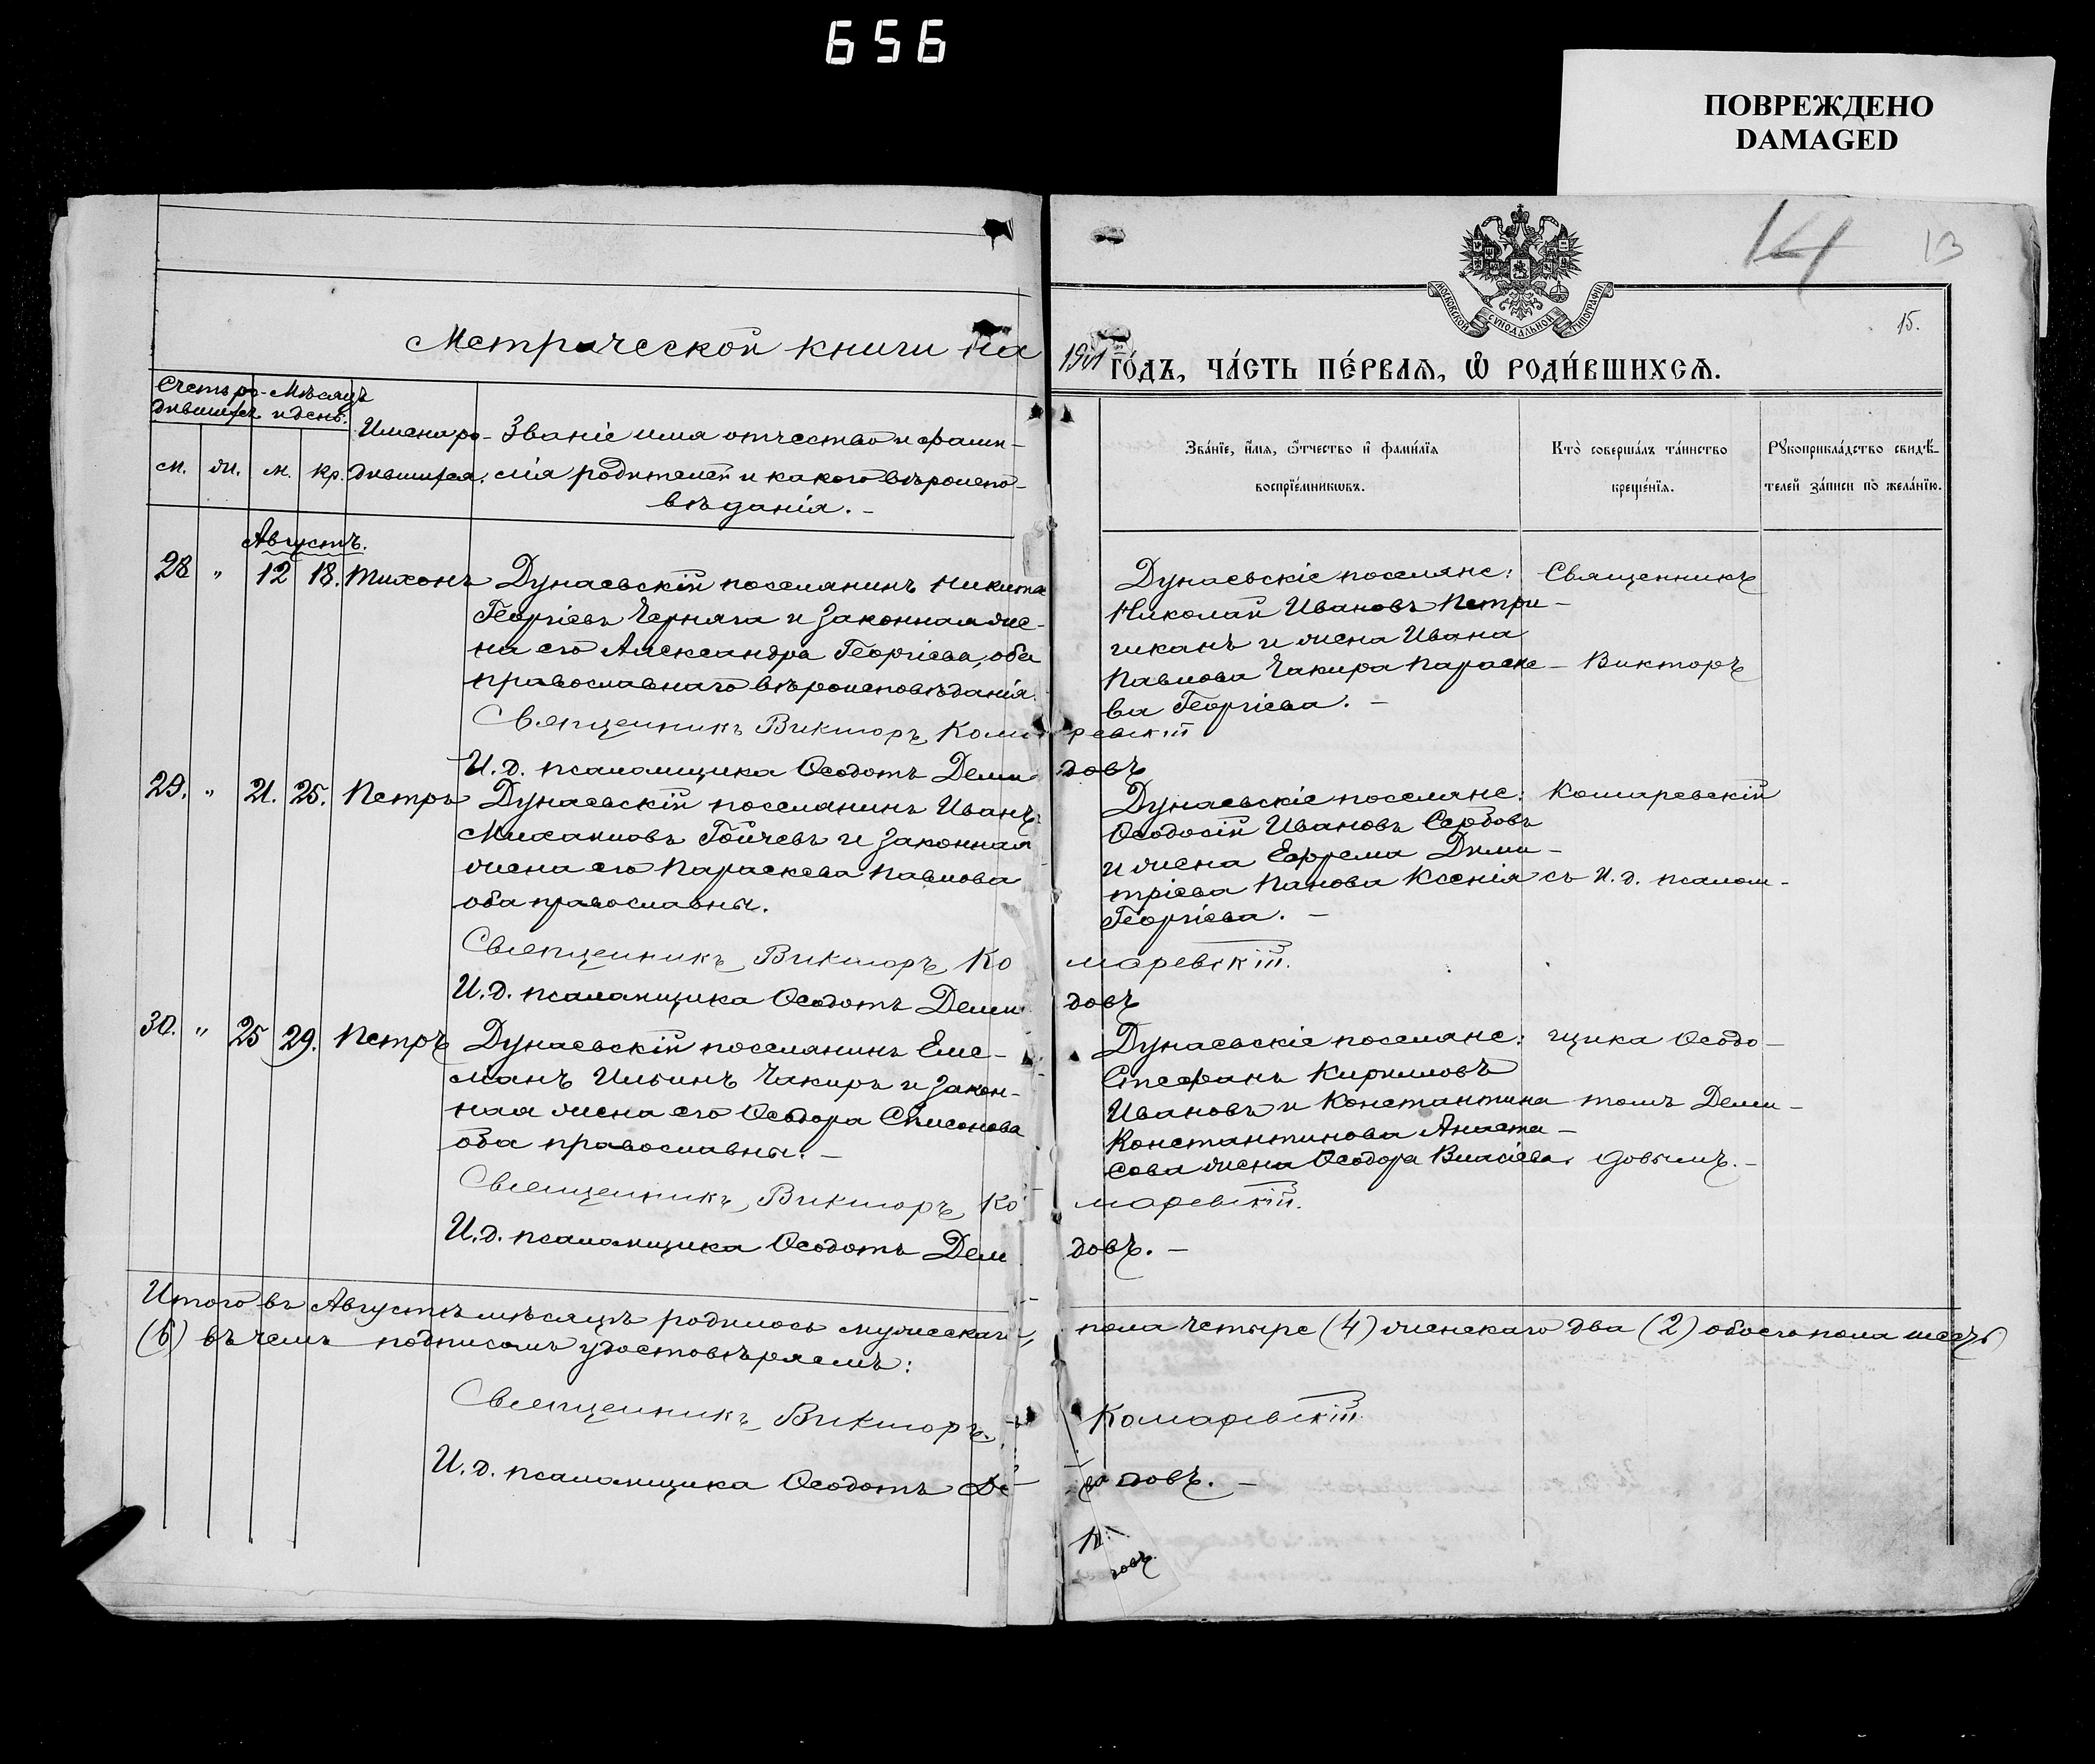 656
ПОВРЕЖДЕНО
DAMAGED
14
13
15.
МОСКОВСКОЙ СѴНОДАЛЬНОЙ ТИПОГРАФІИ
Метрической книги на 1901 го́дъ, ча́сть пе́рвая, ѡ҆ роди́вшихсѧ.
Счетъ ро-
дившихся
Мѣсяцъ
и день.
м. ж. м. кр.
Имена ро-
дившихся.
Званіе имя отчество и фами-
лія родителей и какого вѣроиспо-
вѣданія. –
Зва́нїе, и҆́мѧ, ѻ҆́тчество и҆ фами́лїѧ
воспрїе́мникѡвъ.
Кто̀ соверша́лъ та́инство
креще́нїѧ.
Рꙋкоприкла́дство свидѣ́-
телей за́писи по жела́нїю.
Августъ.
28 " 12 18. Тихонъ
Дунаевскій поселянинъ Никита
Георгіевъ Черняга и законная же-
на его Александра Георгіева, оба
православнаго вѣроисповѣданія.
Дунаевскіе поселяне:
Николай Ивановъ Петри-
чканъ и жена Ивана
Павлова Чакира Параске-
ва Георгіева. –
Священникъ
Викторъ
Священникъ Викторъ Комаревскій
И.д. псаломщика Ѳеодотъ Демидовъ
29. " 21. 25. Петръ
Дунаевскій поселянинъ Иванъ
Михаиловъ Гойчевъ и законная
жена его Параскева Павлова
оба православны.
Дунаевскіе поселяне:
Ѳеодосій Ивановъ Сербовъ
и жена Ефрема Дими-
тріева Панова Ксенія
Георгіева. –
Комаревскій
съ И.д. псалом-
Священникъ Викторъ Комаревскій.
И.д. псаломщика Ѳеодотъ Демидовъ
30. " 25 29. Петръ
Дунаевскій поселянинъ Еме-
ліанъ Ильинъ Чакиръ и закон-
ная жена его Ѳеодора Симеонова
оба православны. –
Дунаевскіе поселяне:
Стефанъ Кирилловъ
Ивановъ и Константина
Константинова Анаста-
сова жена Ѳеодора Власіева.
щика Ѳеодо-
томъ Деми-
довымъ. –
Священникъ Викторъ Комаревскій.
И.д. псаломщика Ѳеодотъ Демидовъ. –
Итого въ Августѣ мѣсяцѣ родилось мужескаго пола четыре (4) женскаго два (2) обоего пола шесть
(6) въ чемъ подписомъ удостовѣряемъ:
Священникъ Викторъ Комаревскій.
И.д. псаломщика Ѳеодотъ Де довъ. –
довъ.